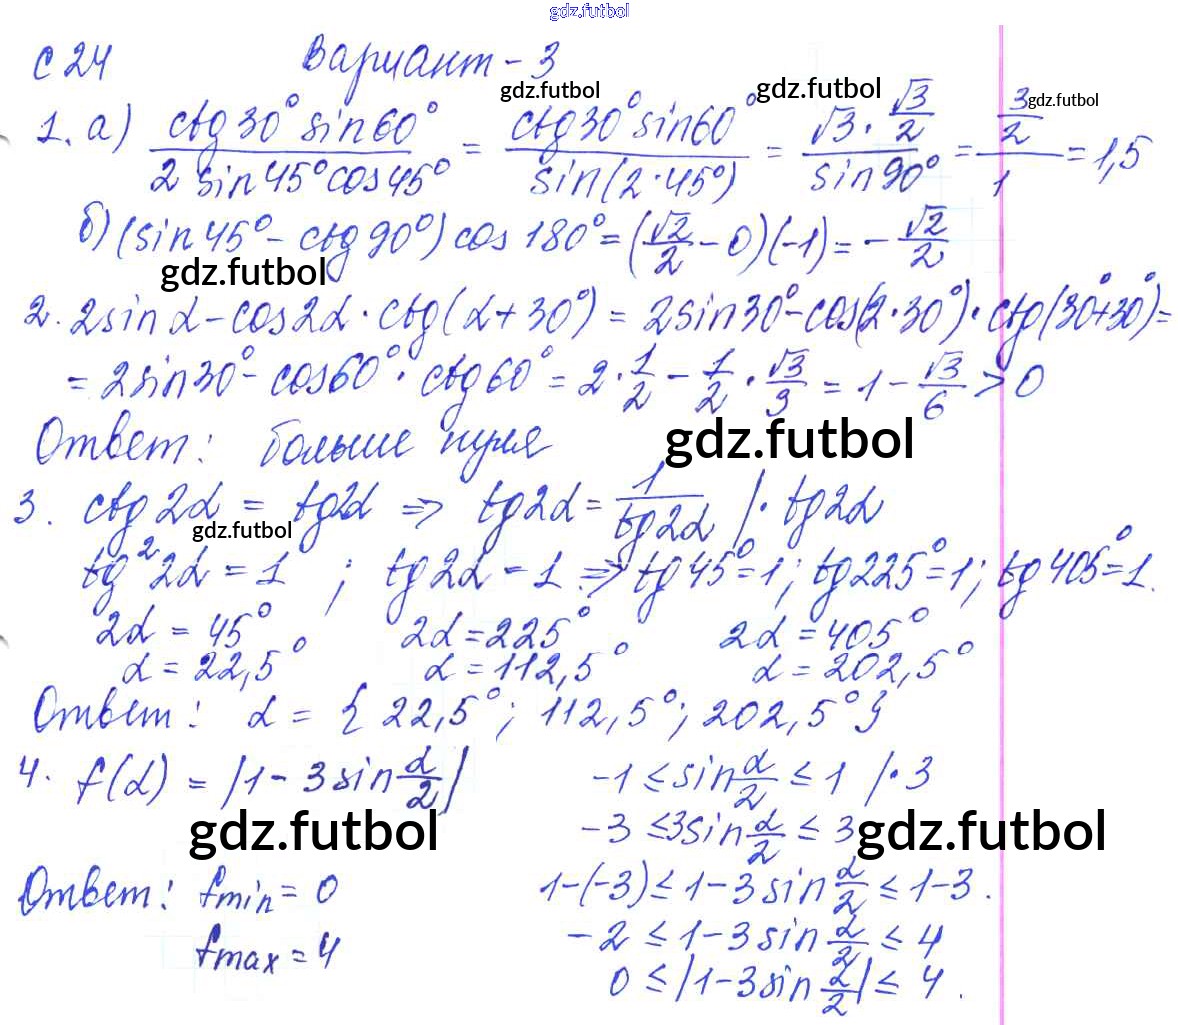 gdz.futbol
С 24 Вариант - 3
gdz.futbol gdz.futbol gdz.futbol
1. а) (ctg 30° sin 60°)/(2 sin 45° cos 45°) = (ctg 30° sin 60°)/(sin(2·45°)) = (√3 · √3/2)/(sin 90°) = (3/2)/1 = 1,5
б) (sin 45° - ctg 90°) cos 180° = (√2/2 - 0)(-1) = - √2/2
gdz.futbol
2. 2 sin α - cos 2α · ctg(α + 30°) = 2 sin 30° - cos(2·30°) · ctg(30° + 30°) =
= 2 sin 30° - cos 60° · ctg 60° = 2 · 1/2 - 1/2 · √3/3 = 1 - √3/6 > 0
Ответ: больше нуля
gdz.futbol
3. ctg 2α = tg 2α ⇒ tg 2α = 1/(tg 2α) | · tg 2α
gdz.futbol
tg² 2α = 1 ; tg 2α = 1 ⇒ tg 45° = 1; tg 225° = 1; tg 405° = 1.
2α = 45° 2α = 225° 2α = 405°
α = 22,5° α = 112,5° α = 202,5°
Ответ: α = { 22,5°; 112,5°; 202,5° }
4. f(α) = |1 - 3 sin α/2| -1 ≤ sin α/2 ≤ 1 | · 3
gdz.futbol -3 ≤ 3 sin α/2 ≤ 3 gdz.futbol
Ответ: fmin = 0 1-(-3) ≤ 1 - 3 sin α/2 ≤ 1 - 3.
fmax = 4 -2 ≤ 1 - 3 sin α/2 ≤ 4
0 ≤ |1 - 3 sin α/2| ≤ 4.